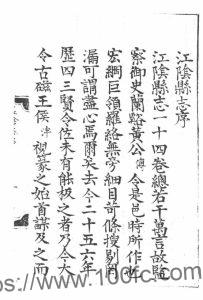 江陰縣志序
江陰縣志一十四卷總若干萬言故監
察御史關谿黃公傅令是邑時所作也
宏綱巨領羅絡無旁細目苛條搜剔罔
漏可謂盡心焉爾矣去今二十五六年
歷四三賢令佐未有能扳之者乃今大
令古磁王侯泮視篆之始首謀及之而
https://www.1001c.com